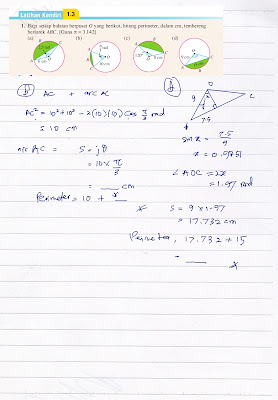 Latihan Kendiri 1.3
1. Bagi setiap bulatan berpusat O yang berikut, hitung perimeter, dalam cm, tembereng
berlorek ABC. [Guna π = 3.142]
(a) (b) (c) (d)
AC + arc AC
AC² = 10² + 10² - 2(10)(10) Cos π/3 rad
= 10 cm
arc AC = S = jθ
= 10 x π/3
= __ cm
Perimeter = 10 + __
O
9
C
7.5
sin x = 7.5/9
∠ AOC = 2x
= 1.97 rad
S = 9 x 1.97
= 17.732 cm
Perimeter, 17.732 + 15
= __